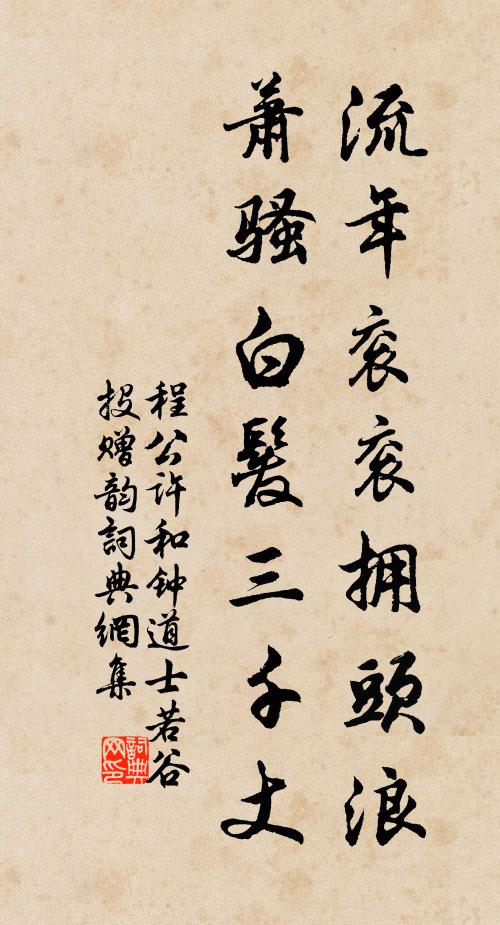 流年衮衮拥頭浪
萧骚白髮三千丈
程公许和钟道士若谷
投赠韵詞典網集
詞典
网印